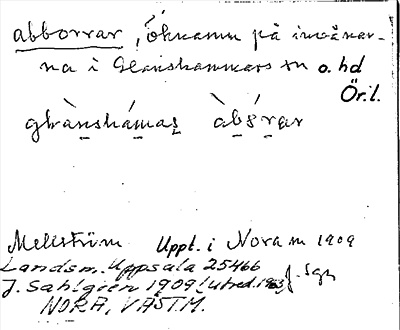 abborrar, öknamn på invånar-
na i Glanshammars sn o. hd
Ör.l.
glànshámas àbo̊rar
Mellström Uppt. i Nora m 1909
Landsm. Uppsala 25466
J. Sahlgren 1909 (utred. 1963) Sgn
NORA, VÄSTM.